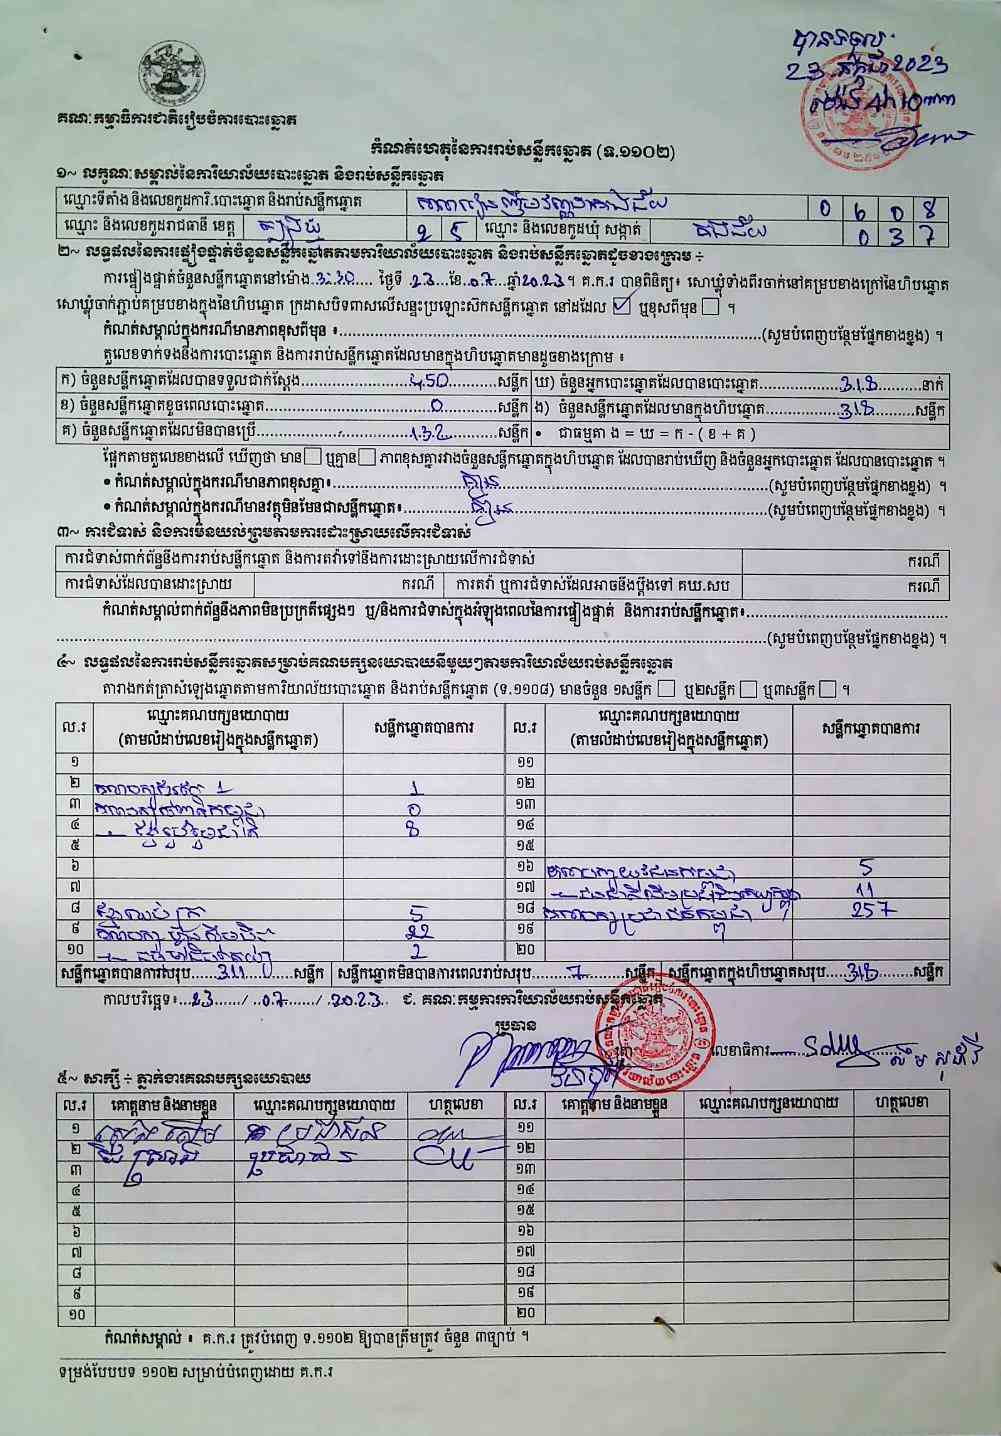 បានទទួល
23 កក្កដា 2023
ម៉ោង 4h 10
គណៈកម្មាធិការជាតិរៀបចំការបោះឆ្នោត
កំណត់ហេតុនៃការរាប់សន្លឹកឆ្នោត (ទ.១១០២)
១~ លក្ខណៈសម្គាល់នៃការិយាល័យបោះឆ្នោត និងរាប់សន្លឹកឆ្នោត
ឈ្មោះទីតាំង និងលេខកូដការិ.បោះឆ្នោត និងរាប់សន្លឹកឆ្នោត 0 6 0 8
ឈ្មោះ និងលេខកូដរាជធានី ខេត្ត ត្បូងឃ្មុំ 2 5 ឈ្មោះ និងលេខកូដឃុំ សង្កាត់ 0 3 7
២~ លទ្ធផលនៃការផ្ទៀងផ្ទាត់ចំនួនសន្លឹកឆ្នោតតាមការិយាល័យបោះឆ្នោត និងរាប់សន្លឹកឆ្នោតដូចខាងក្រោម ÷
ការផ្ទៀងផ្ទាត់ចំនួនសន្លឹកឆ្នោតនៅម៉ោង 3:30 ថ្ងៃទី 23 ខែ 07 ឆ្នាំ 2023 ។ គ.ក.រ បានពិនិត្យ៖ សោឃ្លុំទាំងពីរចាក់នៅគម្របខាងក្រៅនៃហិបឆ្នោត
សោឃ្លុំចាក់ភ្ជាប់គម្របខាងក្នុងនៃហិបឆ្នោត ក្រដាសបិទពាសលើសន្ទះប្រឡោះស៊កសន្លឹកឆ្នោត នៅដដែល ☑ ឬខុសពីមុន ☐ ។
កំណត់សម្គាល់ក្នុងករណីមានភាពខុសពីមុន ៖ (សូមបំពេញបន្ថែមផ្នែកខាងខ្នង) ។
តួលេខទាក់ទងនឹងការបោះឆ្នោត និងការរាប់សន្លឹកឆ្នោតដែលមានក្នុងហិបឆ្នោតមានដូចខាងក្រោម ៖
ក) ចំនួនសន្លឹកឆ្នោតដែលបានទទួលជាក់ស្តែង 450 សន្លឹក ឃ) ចំនួនអ្នកបោះឆ្នោតដែលបានបោះឆ្នោត 318 នាក់
ខ) ចំនួនសន្លឹកឆ្នោតខូចពេលបោះឆ្នោត 0 សន្លឹក ង) ចំនួនសន្លឹកឆ្នោតដែលមានក្នុងហិបឆ្នោត 318 សន្លឹក
គ) ចំនួនសន្លឹកឆ្នោតដែលមិនបានប្រើ 132 សន្លឹក • ជាធម្មតា ង = ឃ = ក - ( ខ + គ )
ផ្អែកតាមតួលេខខាងលើ ឃើញថា មាន ☐ ឬគ្មាន ☐ ភាពខុសគ្នារវាងចំនួនសន្លឹកឆ្នោតក្នុងហិបឆ្នោត ដែលបានរាប់ឃើញ និងចំនួនអ្នកបោះឆ្នោត ដែលបានបោះឆ្នោត ។
• កំណត់សម្គាល់ក្នុងករណីមានភាពខុសគ្នា៖ គ្មាន (សូមបំពេញបន្ថែមផ្នែកខាងខ្នង) ។
• កំណត់សម្គាល់ក្នុងករណីមានវត្ថុមិនមែនជាសន្លឹកឆ្នោត៖ គ្មាន (សូមបំពេញបន្ថែមផ្នែកខាងខ្នង) ។
៣~ ការជំទាស់ និងការមិនយល់ព្រមតាមការដោះស្រាយលើការជំទាស់
ការជំទាស់ពាក់ព័ន្ធនឹងការរាប់សន្លឹកឆ្នោត និងការតវ៉ាទៅនឹងការដោះស្រាយលើការជំទាស់ ករណី
ការជំទាស់ដែលបានដោះស្រាយ ករណី ការតវ៉ា ឬការជំទាស់ដែលអាចនឹងប្តឹងទៅ គឃ.សប ករណី
កំណត់សម្គាល់ពាក់ព័ន្ធនឹងភាពមិនប្រក្រតីផ្សេងៗ ឬ/និងការជំទាស់ក្នុងអំឡុងពេលនៃការផ្ទៀងផ្ទាត់ និងការរាប់សន្លឹកឆ្នោត៖
(សូមបំពេញបន្ថែមផ្នែកខាងខ្នង) ។
៤~ លទ្ធផលនៃការរាប់សន្លឹកឆ្នោតសម្រាប់គណបក្សនយោបាយនីមួយៗតាមការិយាល័យរាប់សន្លឹកឆ្នោត
តារាងកត់ត្រាសំឡេងឆ្នោតតាមការិយាល័យបោះឆ្នោត និងរាប់សន្លឹកឆ្នោត (ទ.១១០៨) មានចំនួន ១សន្លឹក ☐ ឬ២សន្លឹក ☐ ឬ៣សន្លឹក ☐ ។
ល.រ ឈ្មោះគណបក្សនយោបាយ (តាមលំដាប់លេខរៀងក្នុងសន្លឹកឆ្នោត) សន្លឹកឆ្នោតបានការ ល.រ ឈ្មោះគណបក្សនយោបាយ (តាមលំដាប់លេខរៀងក្នុងសន្លឹកឆ្នោត) សន្លឹកឆ្នោតបានការ
១ ១១
២ 1 ១២
៣ 0 ១៣
៤ 8 ១៤
៥ ១៥
៦ ១៦ គណបក្សយុវជនកម្ពុជា 5
៧ ១៧ 11
៨ 5 ១៨ គណបក្សប្រជាជនកម្ពុជា 257
៩ គណបក្ស ហ្វ៊ុនស៊ិនប៉ិច 22 ១៩
១០ 2 ២០
សន្លឹកឆ្នោតបានការសរុប 311 សន្លឹក សន្លឹកឆ្នោតមិនបានការពេលរាប់សរុប 7 សន្លឹក សន្លឹកឆ្នោតក្នុងហិបឆ្នោតសរុប 318 សន្លឹក
កាលបរិច្ឆេទ៖ 23 / 07 / 2023 ជ. គណៈកម្មការការិយាល័យរាប់សន្លឹកឆ្នោត
ប្រធាន
លេខាធិការ
៥~ សាក្សី ÷ ភ្នាក់ងារគណបក្សនយោបាយ
ល.រ គោត្តនាម និងនាមខ្លួន ឈ្មោះគណបក្សនយោបាយ ហត្ថលេខា ល.រ គោត្តនាម និងនាមខ្លួន ឈ្មោះគណបក្សនយោបាយ ហត្ថលេខា
១ ប្រជាជន ១១
២ ប្រជាជន ១២
៣ ១៣
៤ ១៤
៥ ១៥
៦ ១៦
៧ ១៧
៨ ១៨
៩ ១៩
១០ ២០
កំណត់សម្គាល់ ៖ គ.ក.រ ត្រូវបំពេញ ទ.១១០២ ឱ្យបានត្រឹមត្រូវ ចំនួន ៣ច្បាប់ ។
ទម្រង់បែបបទ ១១០២ សម្រាប់បំពេញដោយ គ.ក.រ